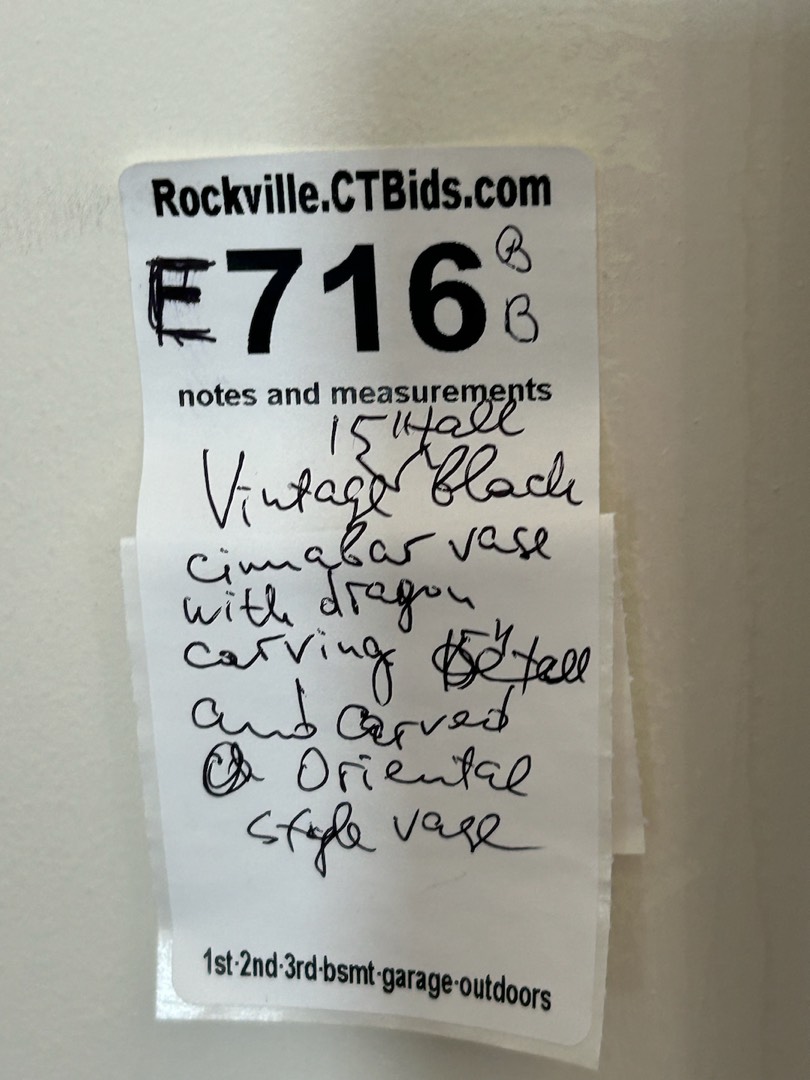 Rockville.CTBids.com
E716 B
B
notes and measurements
15" tall
Vintage black
cinnabar vase
with dragon
carving 15" tall
and carved
Oriental
style vase
1st·2nd·3rd·bsmt·garage·outdoors